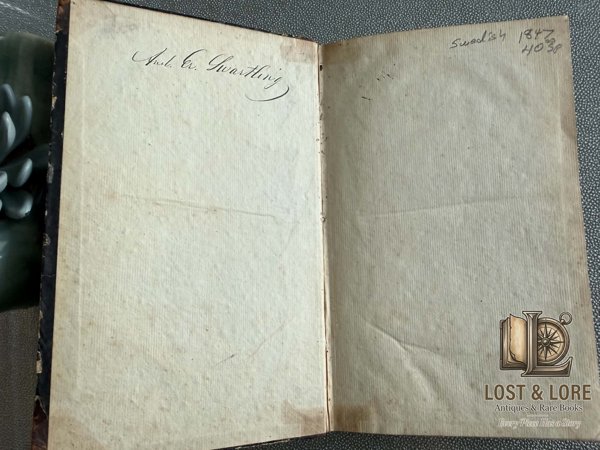 And. Er. Swartling
Swedish 1847
LOST & LORE
Antiques & Rare Books
Every Piece Has a Story